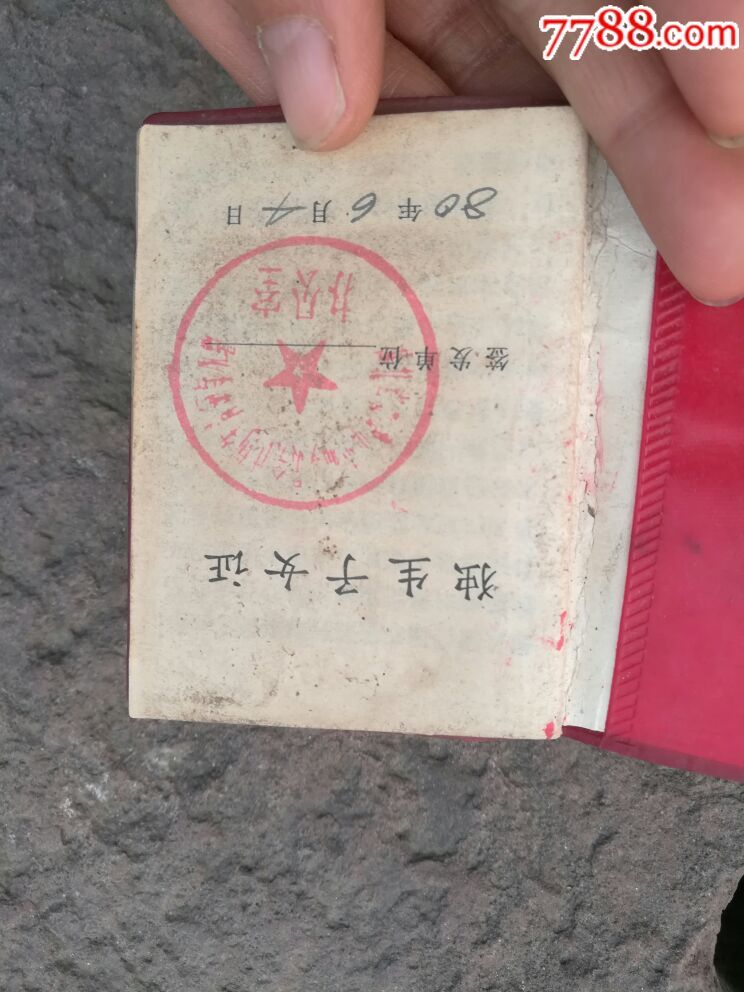 7788.com
独生子女证
签发单位
办公室
80年6月4日